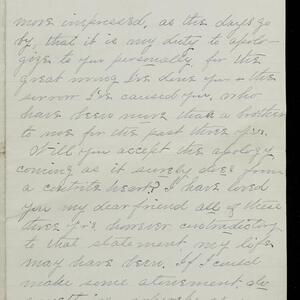 more impressed, as the days go
by, that it is my duty to apolo-
gize to you personally for the
great wrong I've done you & the
sorrow I've caused you, who
have been more than a brother
to me for the past three yrs.
Will you accept this apology
coming as it surely does from
a contrite heart? I have loved
you my dear friend all of these
three yrs, however contradictory
to that statement my life
may have been. If I could
make some atonement, do